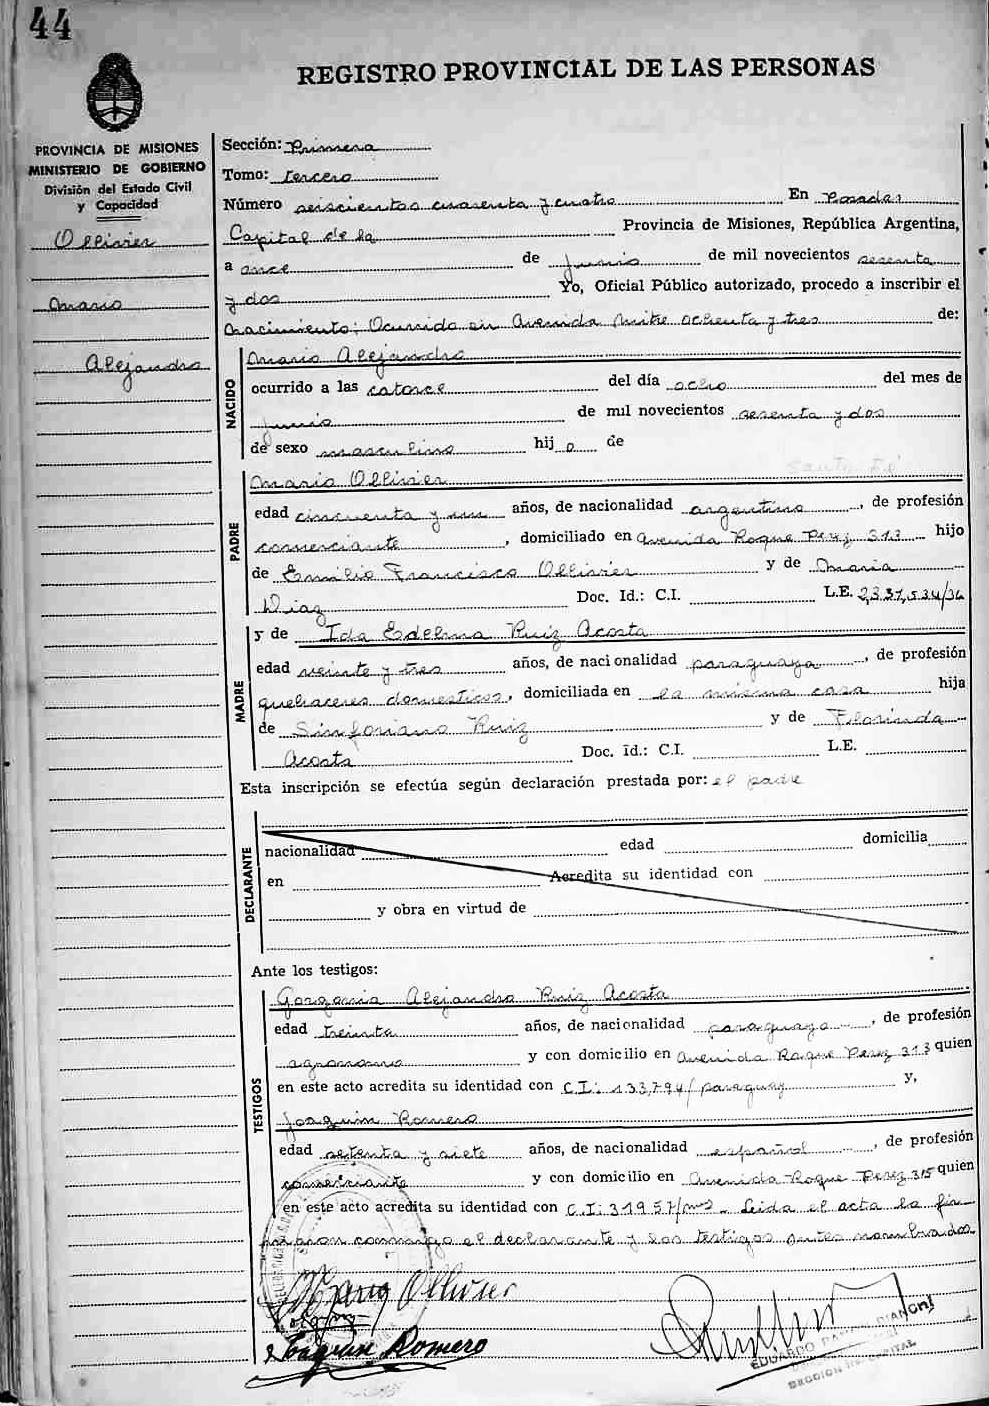 44
REGISTRO PROVINCIAL DE LAS PERSONAS
PROVINCIA DE MISIONES
MINISTERIO DE GOBIERNO
División del Estado Civil
y Capacidad
Ollivier
Mario
Alejandro
Sección: Primera
Tomo: tercero
Número seiscientos cuarenta y cuatro En Posadas
Capital de la Provincia de Misiones, República Argentina,
a once de Junio de mil novecientos sesenta
y dos Yo, Oficial Público autorizado, procedo a inscribir el
Nacimiento: Ocurrido en Avenida Mitre ochenta y tres de:
NACIDO
Mario Alejandro
ocurrido a las catorce del día ocho del mes de
Junio de mil novecientos sesenta y dos
de sexo masculino hij o de
Santa Fé
PADRE
Mario Ollivier
edad cincuenta y un años, de nacionalidad argentino, de profesión
comerciante, domiciliado en Avenida Roque Perez 313 hijo
de Emilio Francisco Ollivier y de Maria
Diaz Doc. Id.: C.I. L.E. 2,337,534/36
MADRE
y de Ida Edelma Ruiz Acosta
edad veinte y tres años, de nacionalidad paraguaya, de profesión
quehaceres domesticos, domiciliada en la misma casa hija
de Sinforiano Ruiz y de Florinda
Acosta Doc. id.: C.I. L.E.
Esta inscripción se efectúa según declaración prestada por: el padre
DECLARANTE
nacionalidad edad domicilia
en Acredita su identidad con
y obra en virtud de
Ante los testigos:
TESTIGOS
Gorgonia Alejandro Ruiz Acosta
edad treinta años, de nacionalidad paraguayo, de profesión
agronomo y con domicilio en Avenida Roque Perez 313 quien
en este acto acredita su identidad con C.I: 133,794/paraguay y,
Joaquin Romero
edad setenta y siete años, de nacionalidad español, de profesión
comerciante y con domicilio en Avenida Roque Perez 315 quien
en este acto acredita su identidad con C.I: 31957/mns. Leida el acta la fir
maron conmigo el declarante y los testigos antes nombrados.
Mario Ollivier
Joaquin Romero
EDUARDO RAMON BIANCHI
SECCION 1ra. CAPITAL